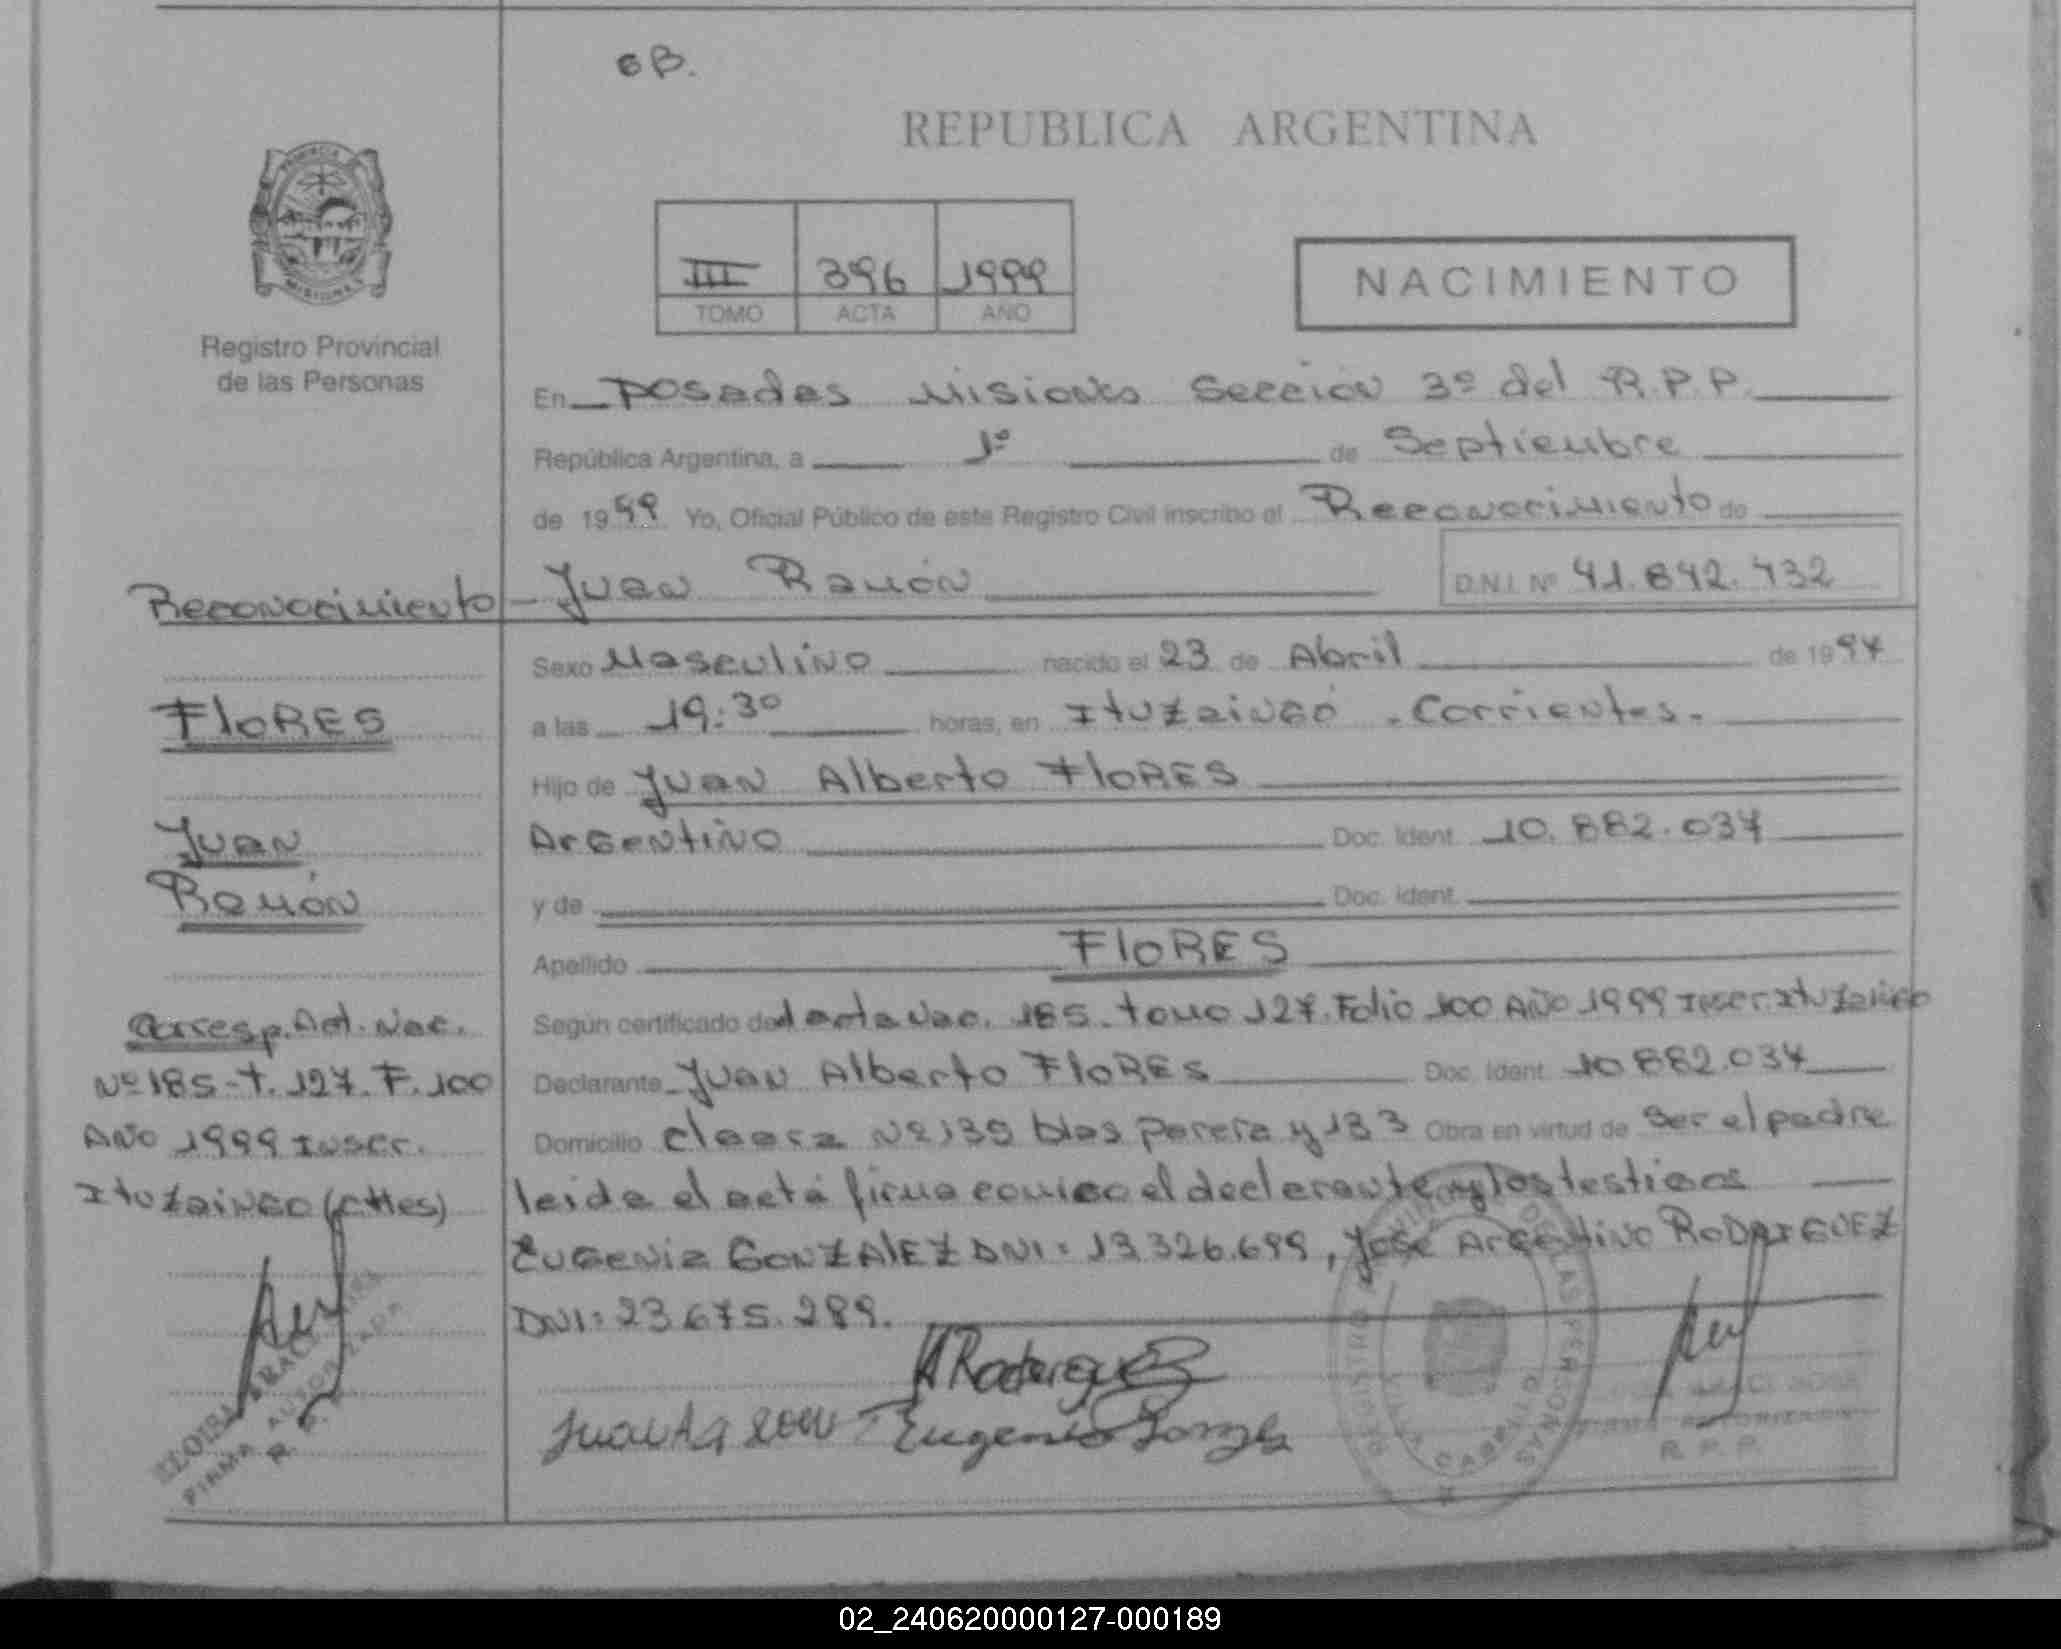 6B.
REPUBLICA ARGENTINA
PROVINCIA
MISIONES
III 396 1999
TOMO ACTA AÑO
NACIMIENTO
Registro Provincial
de las Personas
En Posadas Misiones Sección 3º del R.P.P.
República Argentina, a 1º de Septiembre
de 1999 Yo, Oficial Público de este Registro Civil inscribo el Reconocimiento de
Reconocimiento Juan Ramón D.N.I. Nº 41.842.432
Sexo Masculino nacido el 23 de Abril de 1997
FloRES
a las 19:30 horas, en Ituzaingó - Corrientes.
Hijo de Juan Alberto FloRES
Juan
Argentino Doc. Ident. 10.882.037
Ramón
y de Doc. Ident.
Apellido FloRES
Corresp. Act. Nac.
Nº 185-T. 127. F. 100
Año 1999 Inscr.
Ituzaingo (Cttes)
Según certificado del acta Nac. 185. tomo 127. Folio 100 Año 1999 Inscr. Ituzaingo
Declarante Juan Alberto FloRES Doc. Ident. 10882.037
Domicilio Nº 139 blas parera y 133 Obra en virtud de ser el padre
leida el acta firma conmigo el declarante y los testigos
Eugenia GONZAlEZ DNI: 13.326.699, José Argentino RODRIGUEZ
DNI: 23675.289.
Rodriguez
Eugenia
FIRMA AUTORIZADA
R. P. P.
REGISTRO PROVINCIAL DE LAS PERSONAS
VILLA CABELLO
FIRMA AUTORIZADA
R. P. P.
02_240620000127-000189